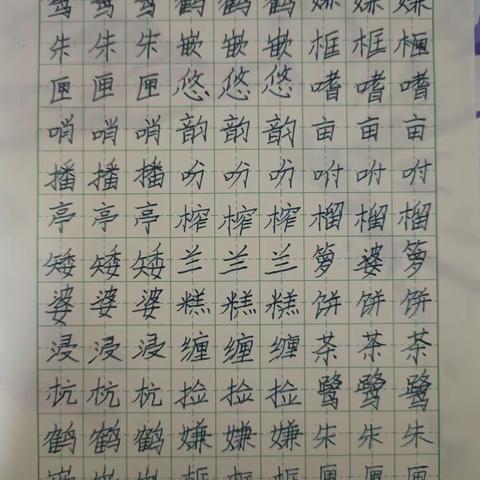 鹤 鹤 鹤 嫌 嫌 嫌
朱 朱 朱 嵌 嵌 嵌 框 框 框
匣 匣 匣 悠 悠 悠 嗜 嗜 嗜
哨 哨 哨 韵 韵 韵 亩 亩 亩
播 播 播 吩 吩 吩 咐 咐 咐
亭 亭 亭 榨 榨 榨 榴 榴 榴
矮 矮 矮 兰 兰 兰 箩 婆 箩
婆 婆 婆 糕 糕 糕 饼 饼 饼
浸 浸 浸 缠 缠 缠 茶 茶 茶
杭 杭 杭 捡 捡 捡 鹭 鹭 鹭
鹤 鹤 鹤 嫌 嫌 嫌 朱 朱 朱
框 框 框 匣 匣 匣